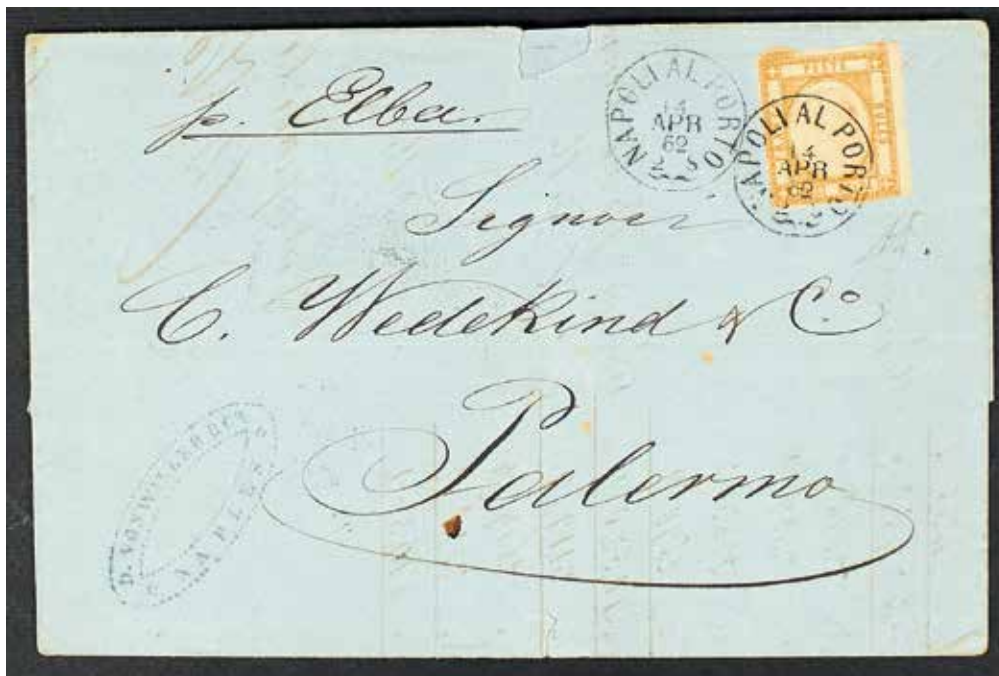 p. Elba.
NAPOLI AL PORTO
14
APR
62
2 S
POSTE
NAPOLI AL PORTO
14
APR
62
Signori
C. Wedekind & Co
Palermo
D. VONWILLER
NAPLES